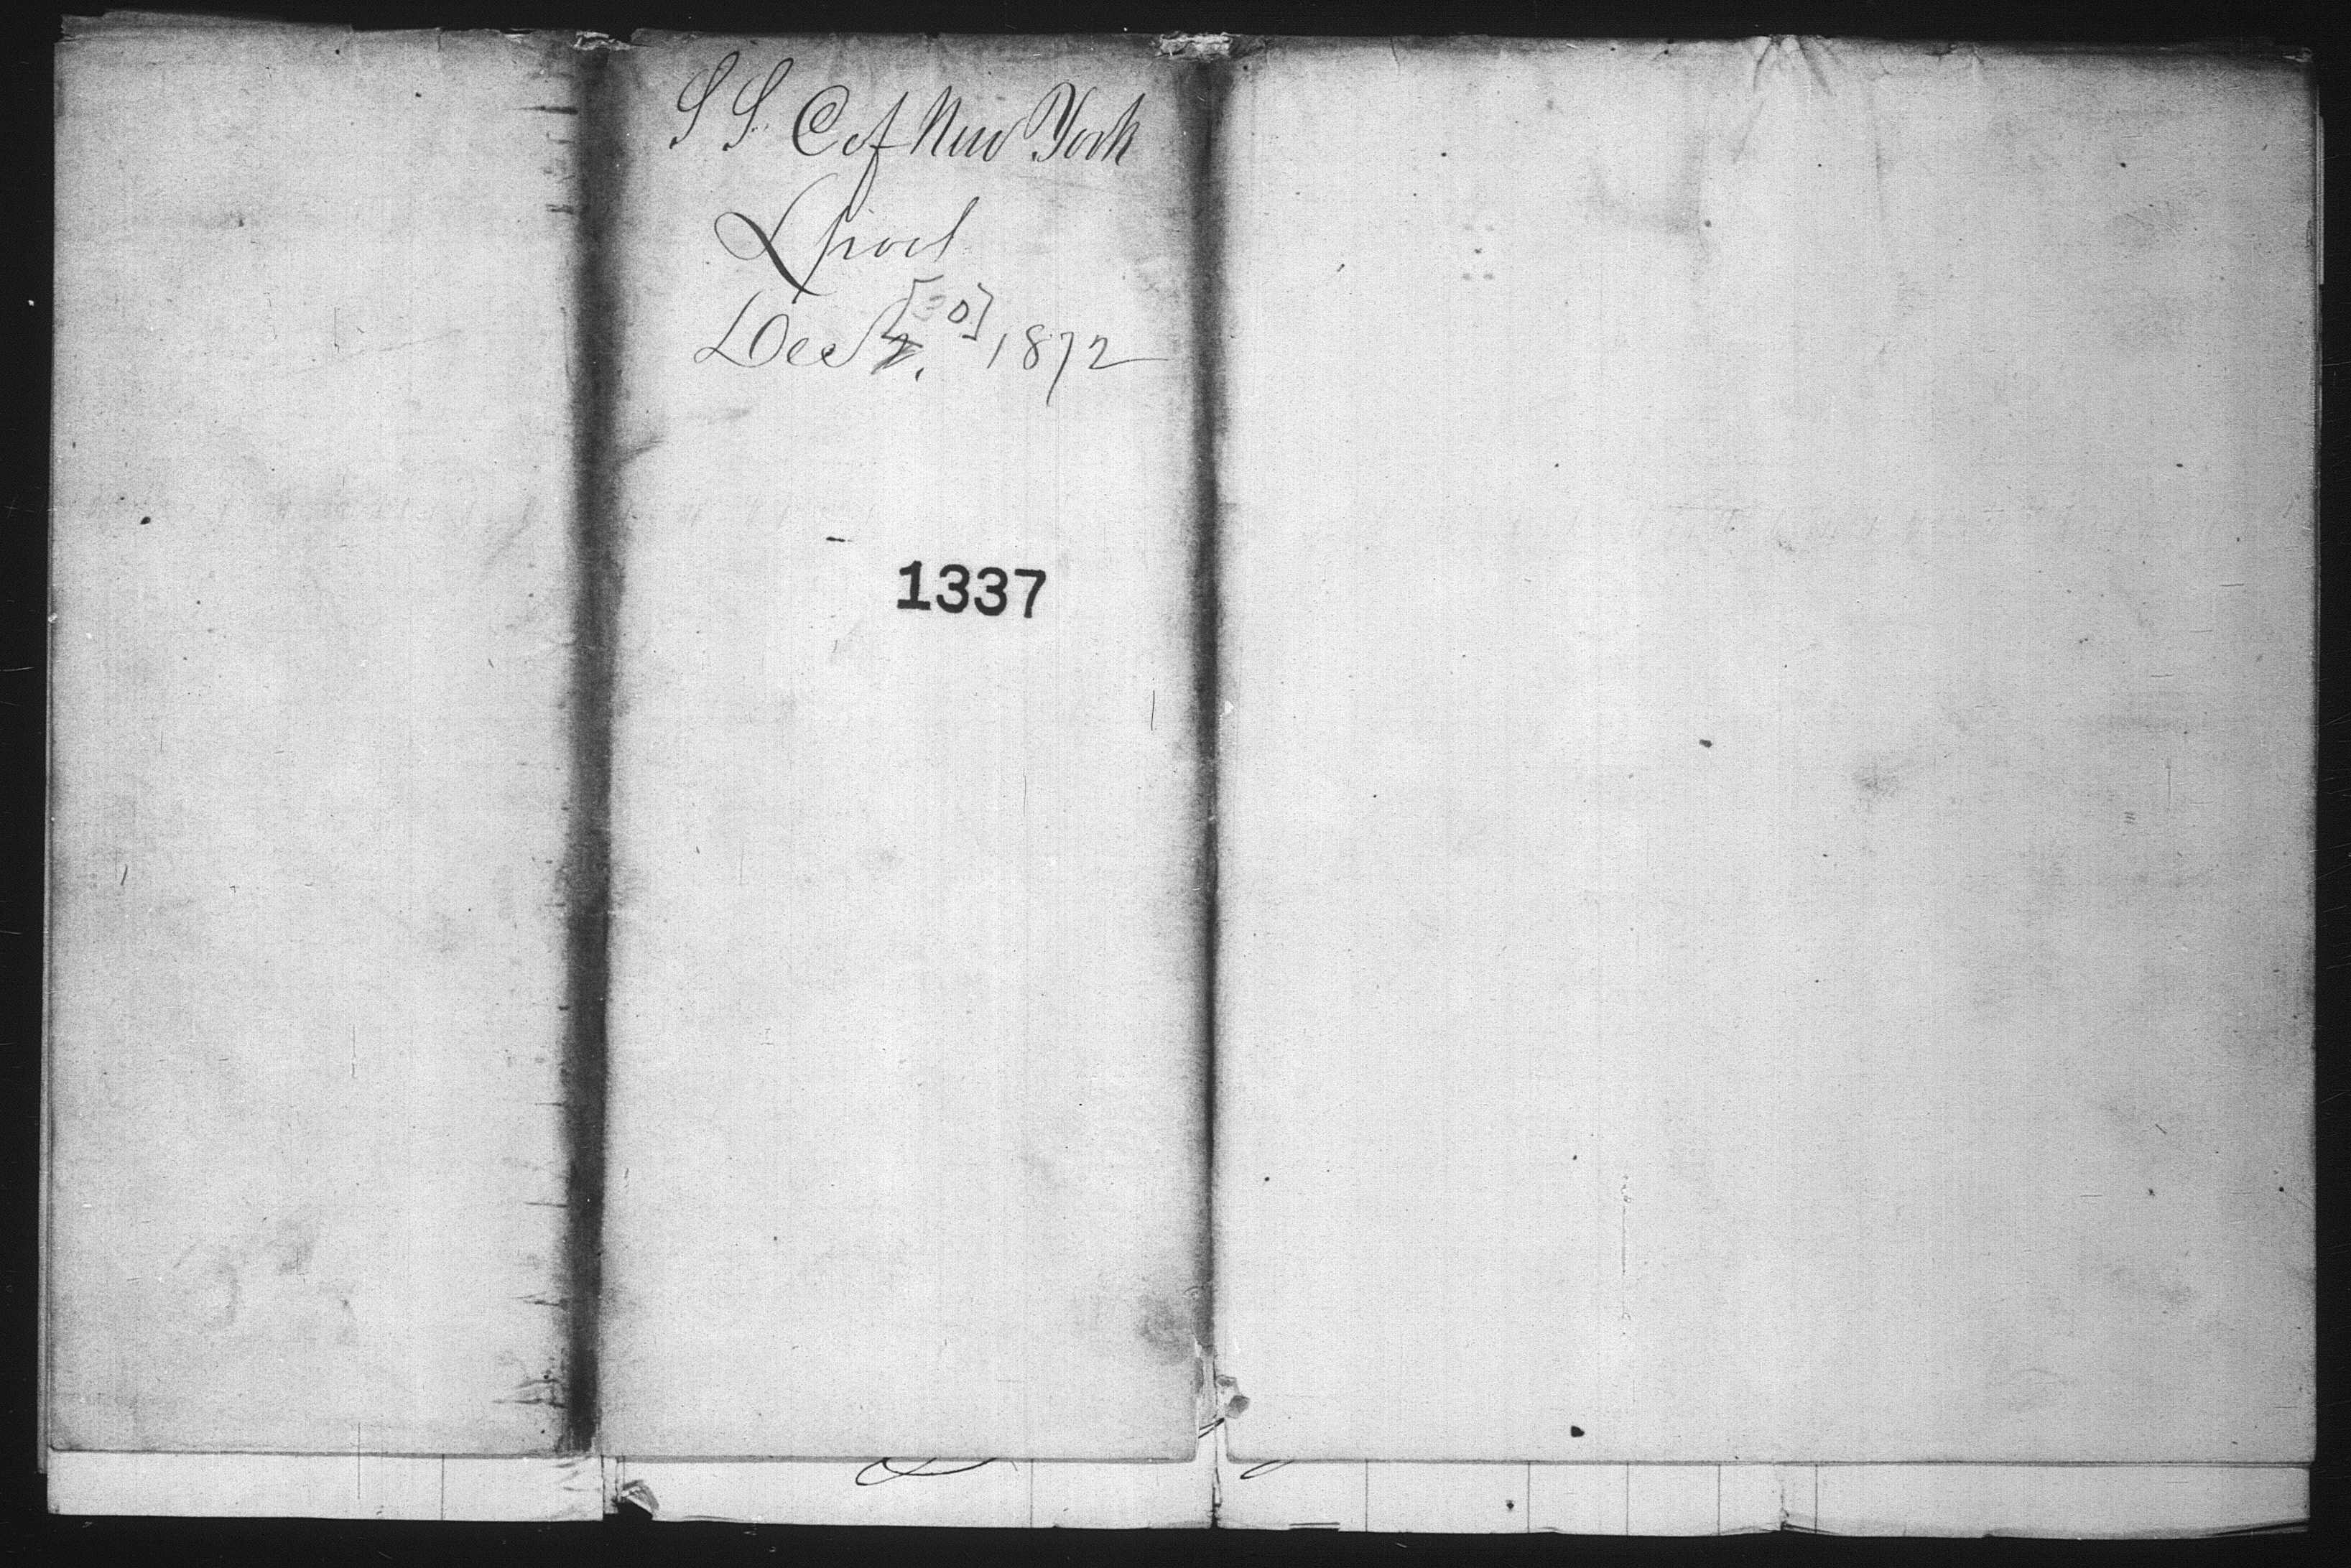 S S C of New York
Lpool
Dec 1872
1337